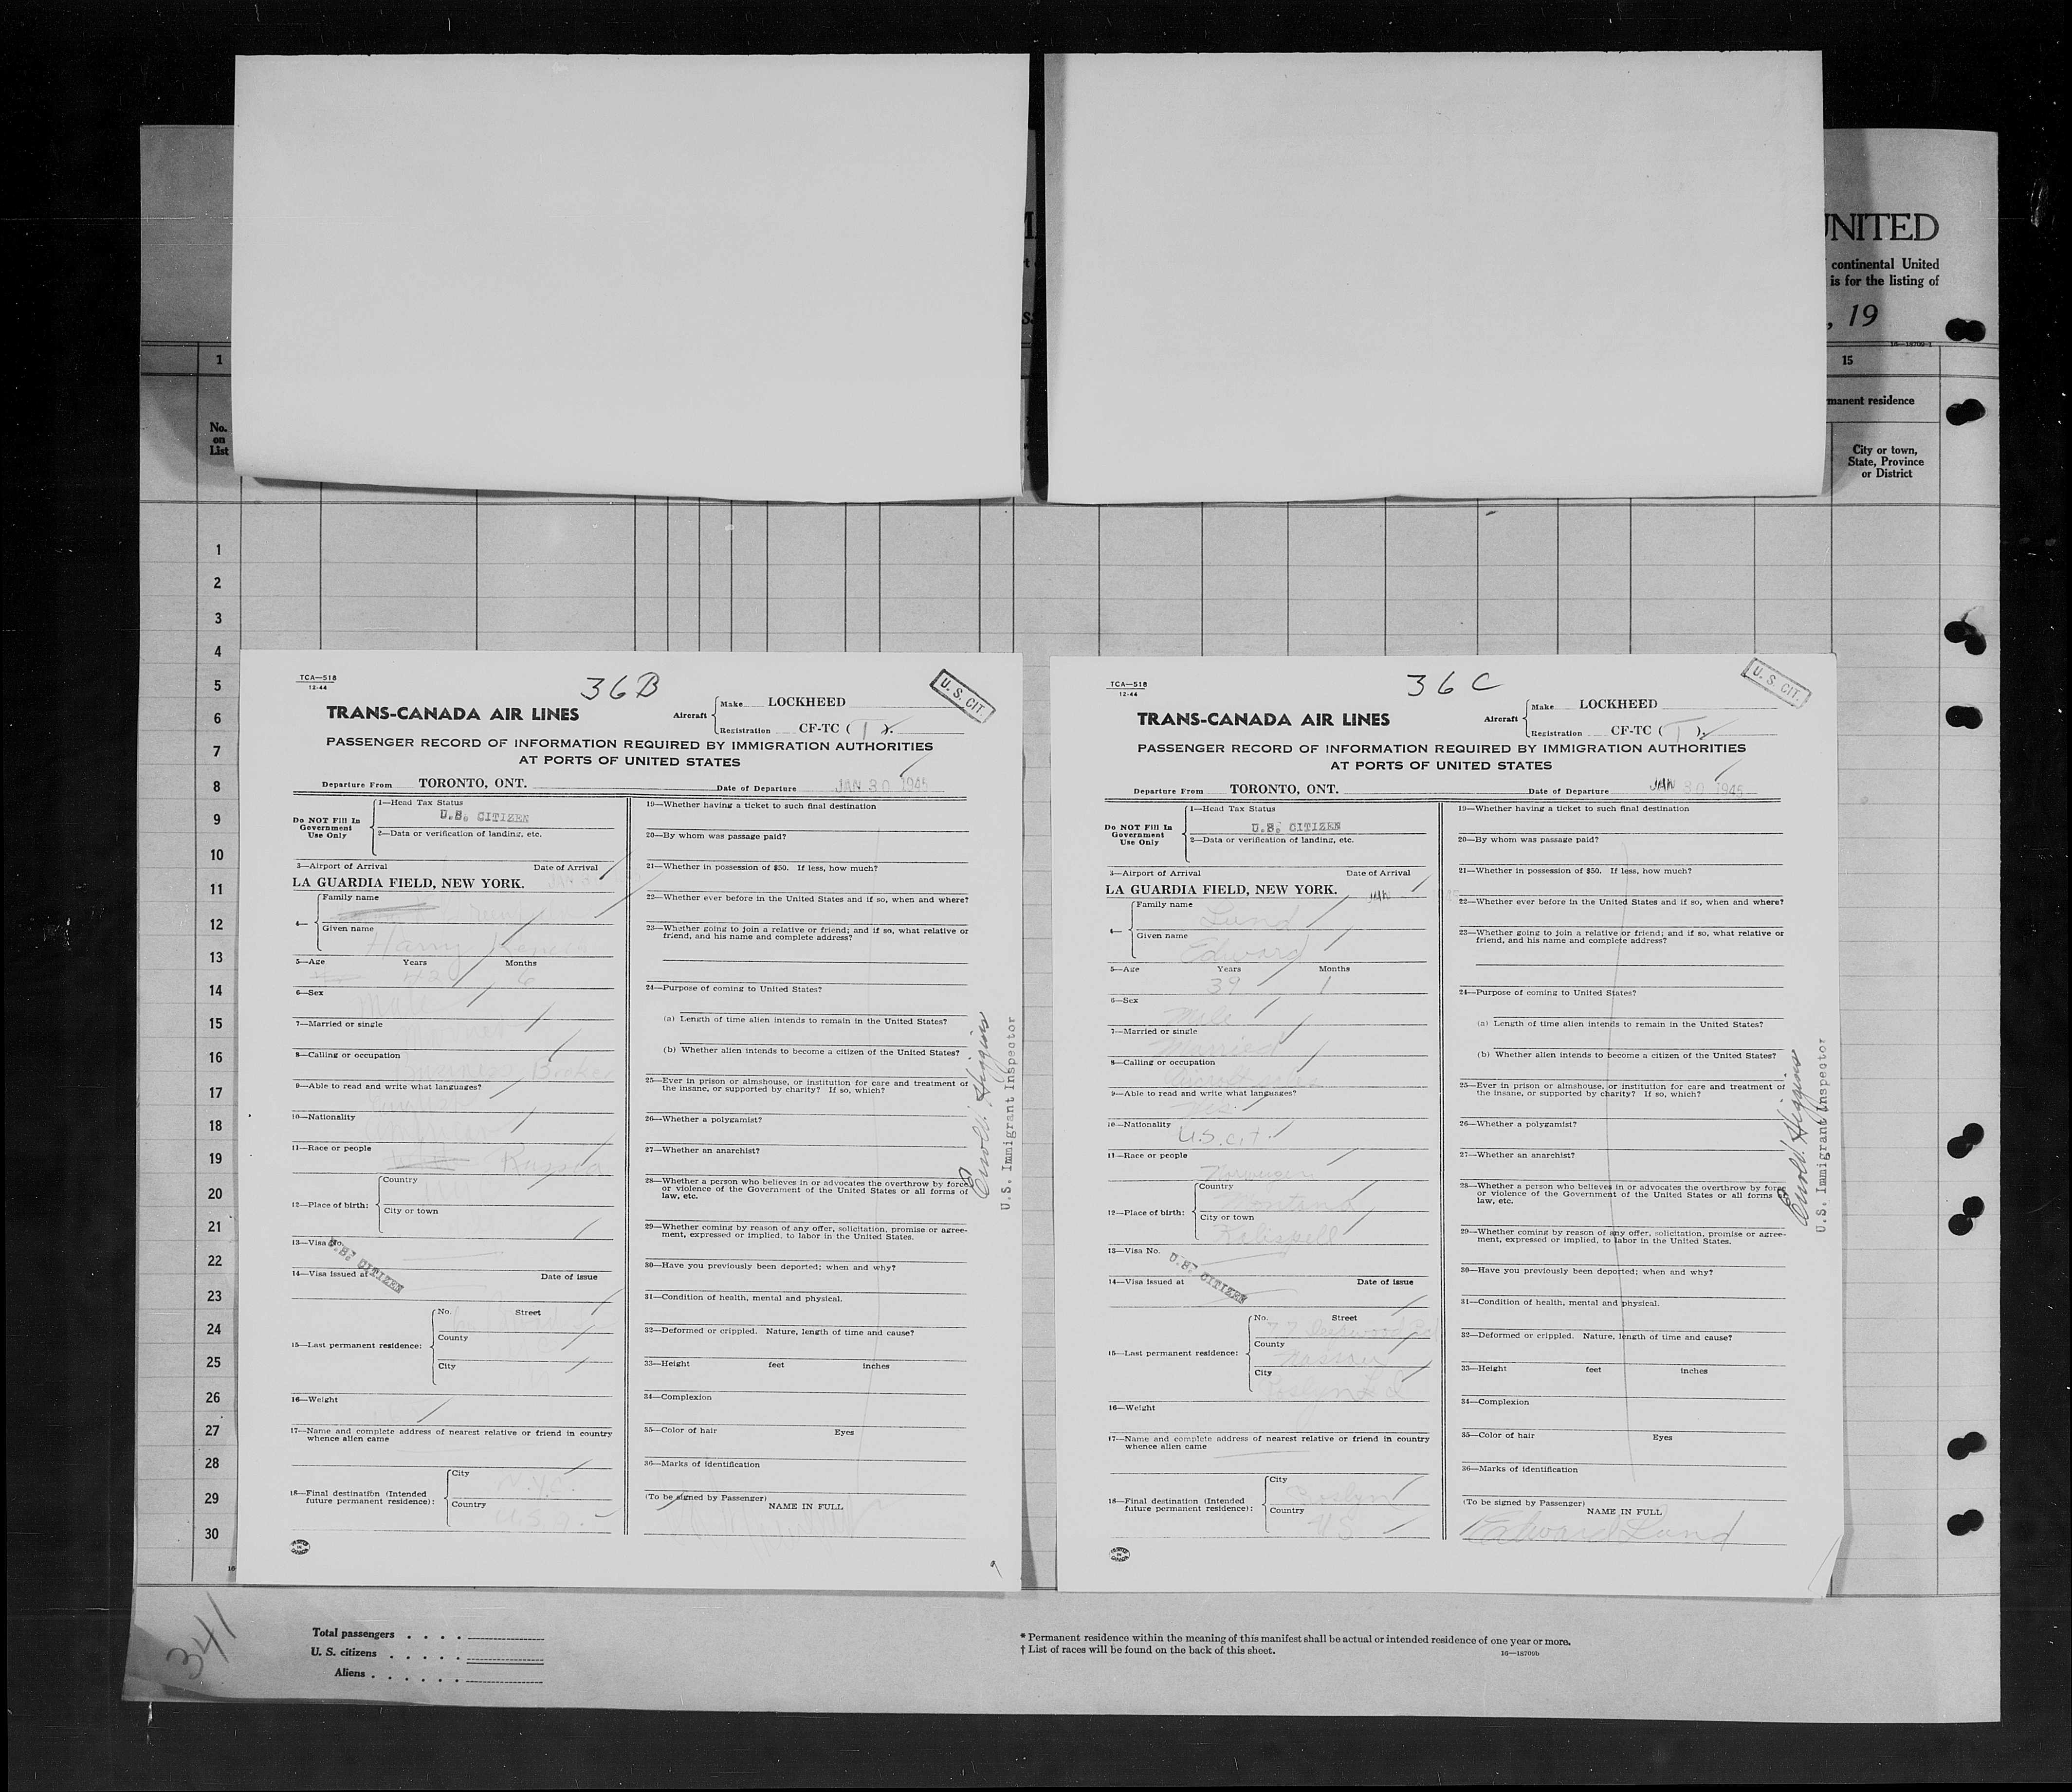 UNITED
continental United
is for the listing of
, 19
16—18709-1
1
15
manent residence
No.
on
List
City or town,
State, Province
or District
1
2
3
4
5
6
7
8
9
10
11
12
13
14
15
16
17
18
19
20
21
22
23
24
25
26
27
28
29
30
TCA—518
12-44
36B
U. S. CIT.
TRANS-CANADA AIR LINES
Aircraft
Make LOCKHEED
Registration CF-TC ( T ).
PASSENGER RECORD OF INFORMATION REQUIRED BY IMMIGRATION AUTHORITIES
AT PORTS OF UNITED STATES
Departure From TORONTO, ONT. Date of Departure JAN 30 1945
Do NOT Fill In
Government
Use Only
1—Head Tax Status
U.S. CITIZEN
2—Data or verification of landing, etc.
3—Airport of Arrival Date of Arrival
LA GUARDIA FIELD, NEW YORK.
4—
Family name
Given name
Harry
5—Age Years Months
42 6
6—Sex
Male
7—Married or single
8—Calling or occupation
Broker
9—Able to read and write what languages?
10—Nationality
11—Race or people
Russia
12—Place of birth:
Country
City or town
13—Visa No.
U.S. CITIZEN
14—Visa issued at Date of issue
15—Last permanent residence:
No. Street
County
City
16—Weight
17—Name and complete address of nearest relative or friend in country
whence alien came
18—Final destination (Intended
future permanent residence):
City
N.Y.C.
Country
U.S.A.
19—Whether having a ticket to such final destination
20—By whom was passage paid?
21—Whether in possession of $50. If less, how much?
22—Whether ever before in the United States and if so, when and where?
23—Whether going to join a relative or friend; and if so, what relative or
friend, and his name and complete address?
24—Purpose of coming to United States?
(a) Length of time alien intends to remain in the United States?
(b) Whether alien intends to become a citizen of the United States?
25—Ever in prison or almshouse, or institution for care and treatment of
the insane, or supported by charity? If so, which?
26—Whether a polygamist?
27—Whether an anarchist?
28—Whether a person who believes in or advocates the overthrow by force
or violence of the Government of the United States or all forms of
law, etc.
29—Whether coming by reason of any offer, solicitation, promise or agree-
ment, expressed or implied, to labor in the United States.
30—Have you previously been deported; when and why?
31—Condition of health, mental and physical.
32—Deformed or crippled. Nature, length of time and cause?
33—Height feet inches
34—Complexion
35—Color of hair Eyes
36—Marks of identification
(To be signed by Passenger)
NAME IN FULL
Higgins
U.S. Immigrant Inspector
TCA—518
12-44
36C
U. S. CIT.
TRANS-CANADA AIR LINES
Aircraft
Make LOCKHEED
Registration CF-TC ( T ).
PASSENGER RECORD OF INFORMATION REQUIRED BY IMMIGRATION AUTHORITIES
AT PORTS OF UNITED STATES
Departure From TORONTO, ONT. Date of Departure JAN 30 1945
Do NOT Fill In
Government
Use Only
1—Head Tax Status
U.S. CITIZEN
2—Data or verification of landing, etc.
3—Airport of Arrival Date of Arrival
LA GUARDIA FIELD, NEW YORK. JAN
4—
Family name
Lund
Given name
Edward
5—Age Years Months
39 1
6—Sex
Male
7—Married or single
Married
8—Calling or occupation
9—Able to read and write what languages?
Yes
10—Nationality
U.S. cit.
11—Race or people
Norwegian
12—Place of birth:
Country
Montana
City or town
Kalispell
13—Visa No.
U.S. CITIZEN
14—Visa issued at Date of issue
15—Last permanent residence:
No. Street
77
County
Nassau
City
Roslyn L I
16—Weight
17—Name and complete address of nearest relative or friend in country
whence alien came
18—Final destination (Intended
future permanent residence):
City
Roslyn
Country
U S
19—Whether having a ticket to such final destination
20—By whom was passage paid?
21—Whether in possession of $50. If less, how much?
22—Whether ever before in the United States and if so, when and where?
23—Whether going to join a relative or friend; and if so, what relative or
friend, and his name and complete address?
24—Purpose of coming to United States?
(a) Length of time alien intends to remain in the United States?
(b) Whether alien intends to become a citizen of the United States?
25—Ever in prison or almshouse, or institution for care and treatment of
the insane, or supported by charity? If so, which?
26—Whether a polygamist?
27—Whether an anarchist?
28—Whether a person who believes in or advocates the overthrow by force
or violence of the Government of the United States or all forms of
law, etc.
29—Whether coming by reason of any offer, solicitation, promise or agree-
ment, expressed or implied, to labor in the United States.
30—Have you previously been deported; when and why?
31—Condition of health, mental and physical.
32—Deformed or crippled. Nature, length of time and cause?
33—Height feet inches
34—Complexion
35—Color of hair Eyes
36—Marks of identification
(To be signed by Passenger)
NAME IN FULL
Edward Lund
Higgins
U.S. Immigrant Inspector
341
Total passengers
U. S. citizens
Aliens
* Permanent residence within the meaning of this manifest shall be actual or intended residence of one year or more.
† List of races will be found on the back of this sheet.
16—18709b